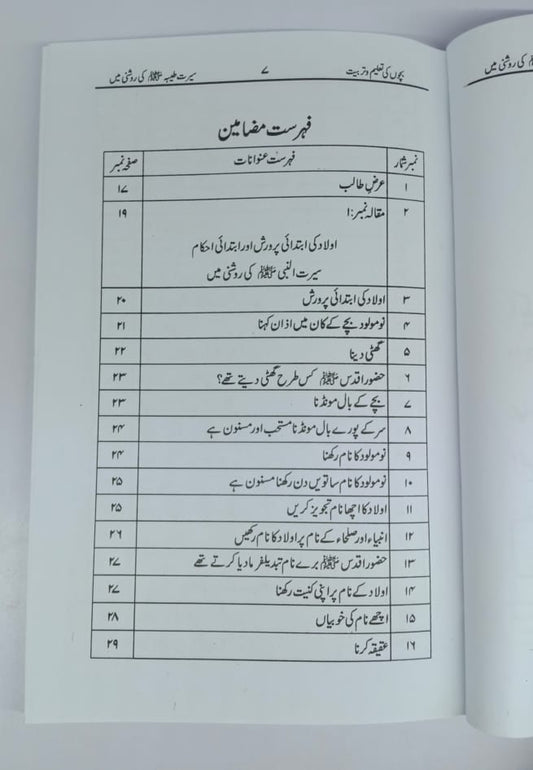 بچوں کی تعلیم و تربیت ۷ سیرت طیبہ ﷺ کی روشنی میں
فہرست مضامین
نمبر شمار فہرست عنوانات صفحہ نمبر
۱ عرض طالب ۱۷
۲ مقالہ نمبر:۱ ۱۹
اولاد کی ابتدائی پرورش اور ابتدائی احکام
سیرت النبی ﷺ کی روشنی میں
۳ اولاد کی ابتدائی پرورش ۲۰
۴ نومولود بچے کے کان میں اذان کہنا ۲۱
۵ گھٹی دینا ۲۲
۶ حضور اقدس ﷺ کس طرح گھٹی دیتے تھے؟ ۲۳
۷ بچے کے بال مونڈنا ۲۳
۸ سر کے پورے بال مونڈنا مستحب اور مسنون ہے ۲۴
۹ نومولود کا نام رکھنا ۲۴
۱۰ نومولود کا نام ساتویں دن رکھنا مسنون ہے ۲۵
۱۱ اولاد کا اچھا نام تجویز کریں ۲۵
۱۲ انبیاء اور صلحاء کے نام پر اولاد کا نام رکھیں ۲۶
۱۳ حضور اقدس ﷺ برے نام تبدیل فرما دیا کرتے تھے ۲۷
۱۴ اولاد کے نام پر اپنی کنیت رکھنا ۲۷
۱۵ اچھے نام کی خوبیاں ۲۸
۱۶ عقیقہ کرنا ۲۹
کی روشنی میں